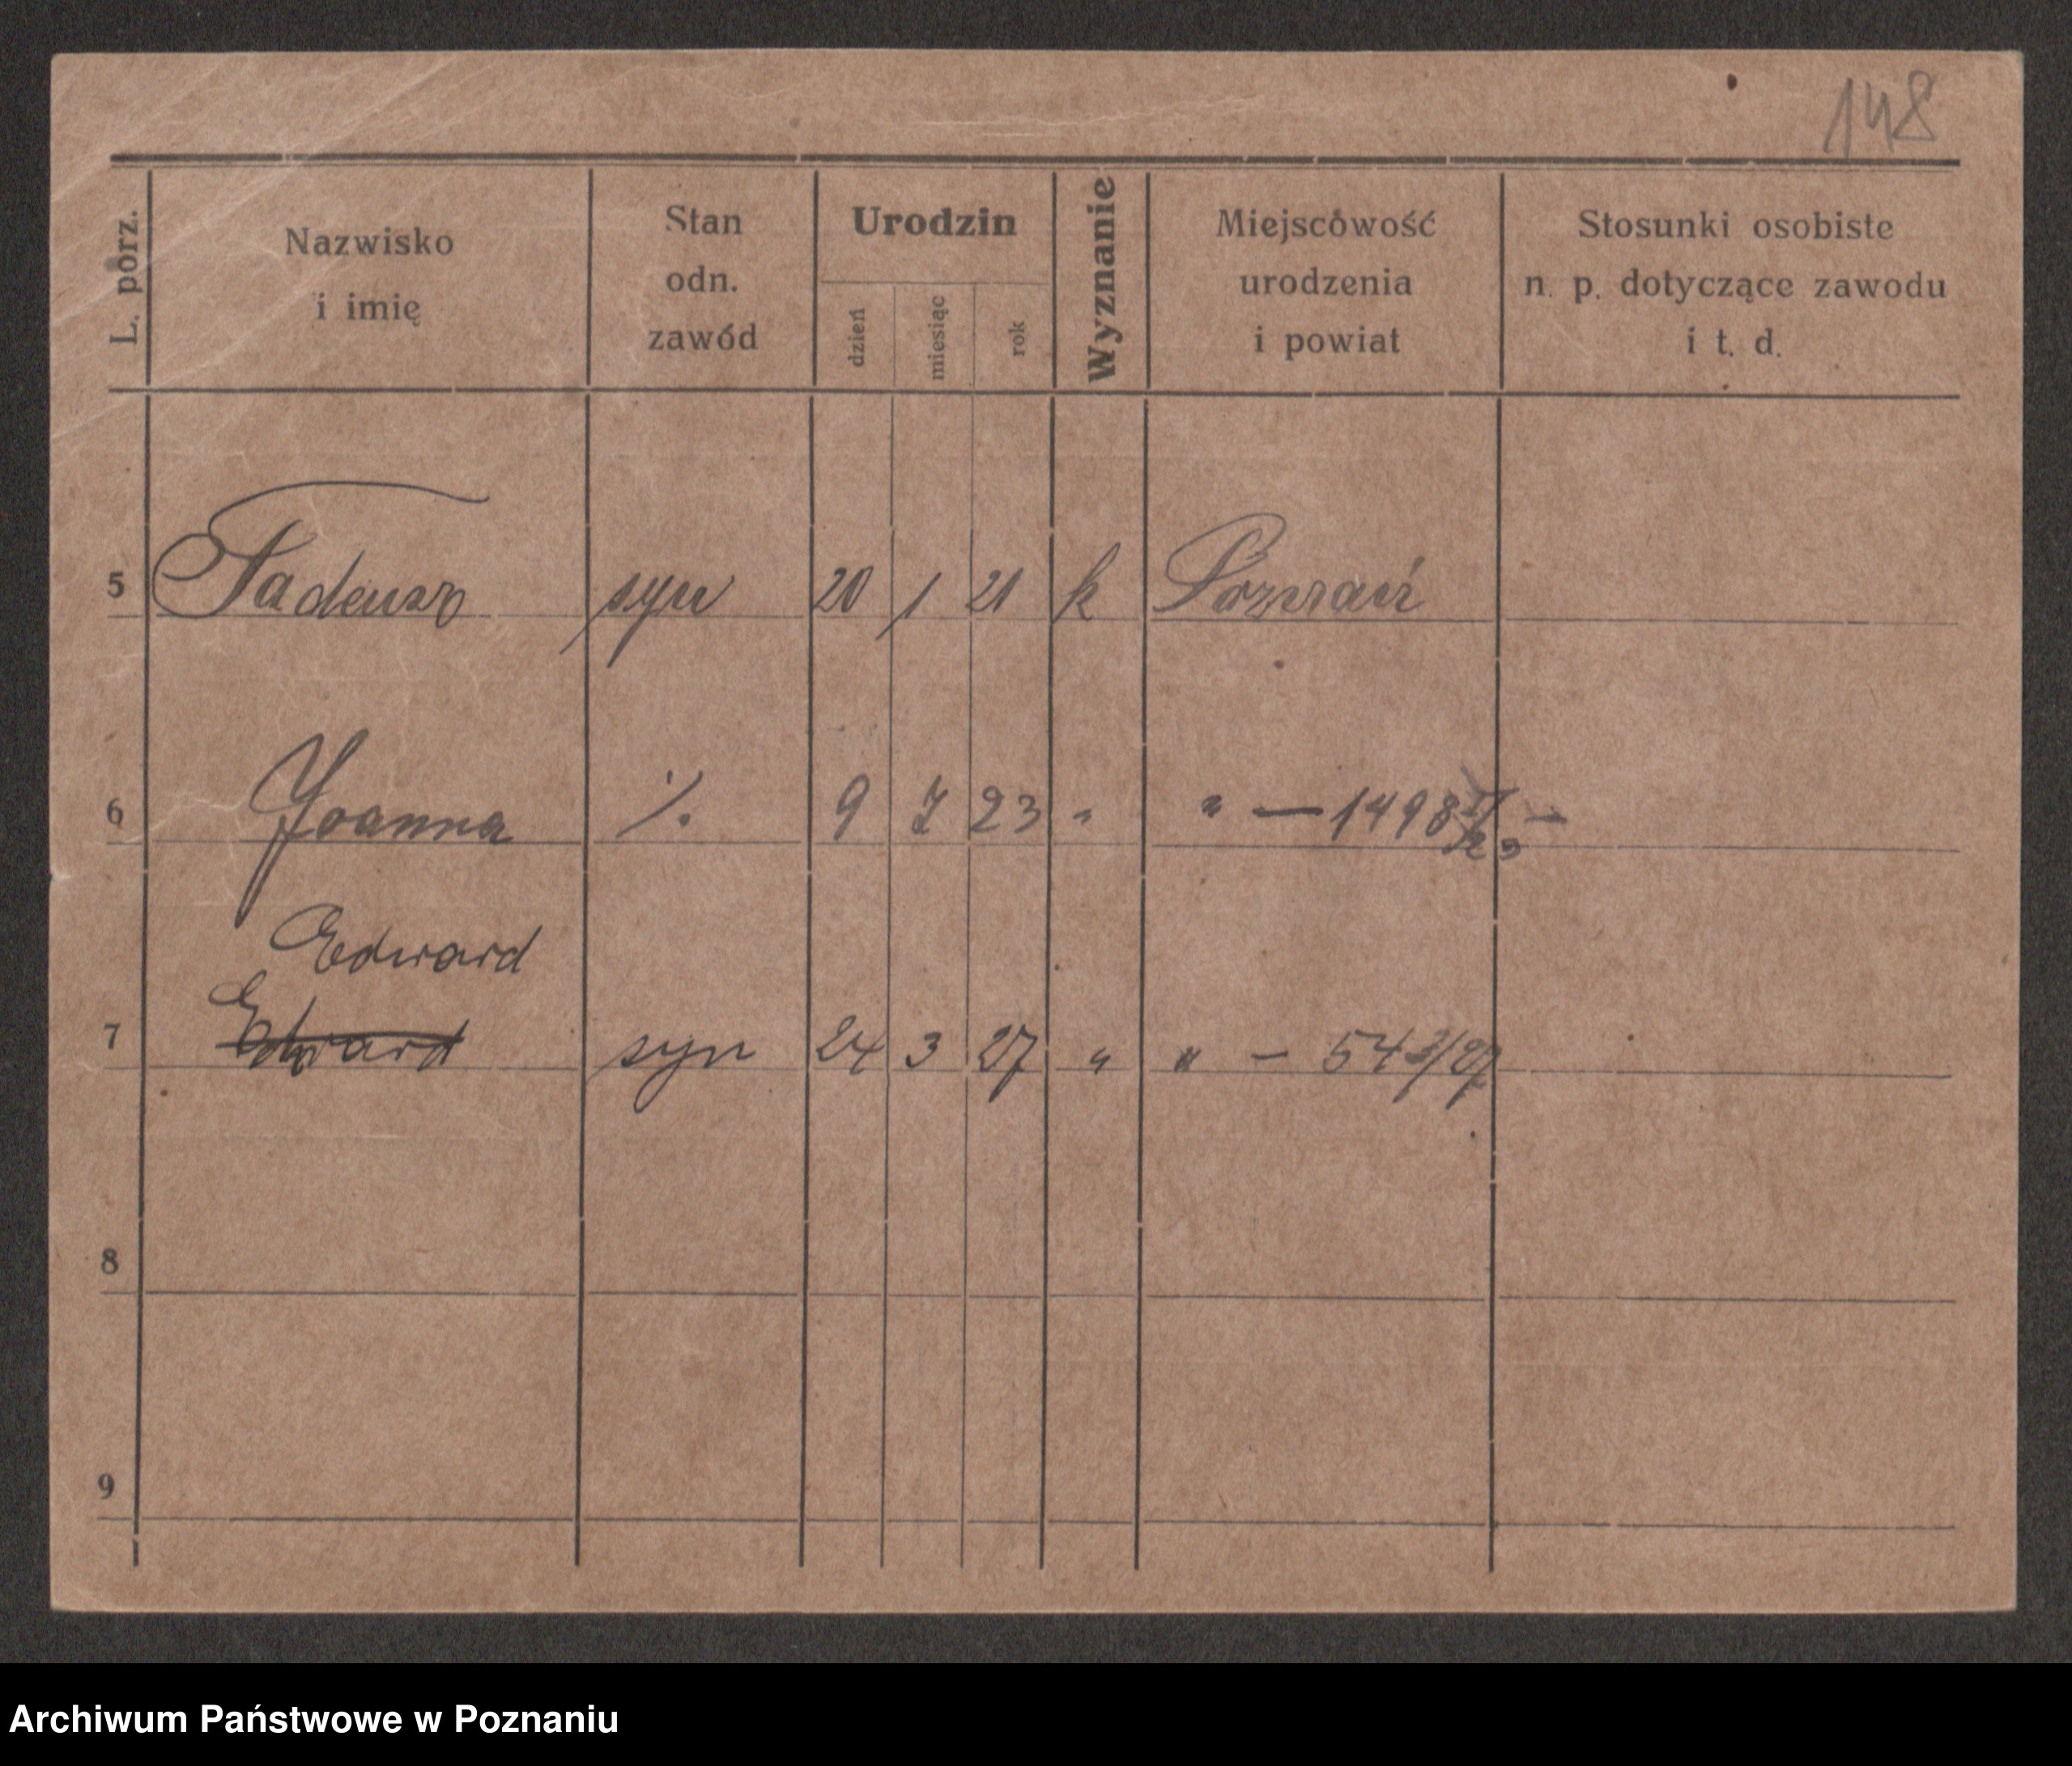 148
L. porz.
Nazwisko
i imię
Stan
odn.
zawód
Urodzin
dzień
miesiąc
rok
Wyznanie
Miejscowość
urodzenia
i powiat
Stosunki osobiste
n. p. dotyczące zawodu
i t. d.
5 Tadeusz syn 20 1 21 k Poznań
6 Joanna ./. 9 7 23 " " — 1498 —
Edward
7 Edward syn 24 3 27 " " — 543/27
8
9
Archiwum Państwowe w Poznaniu